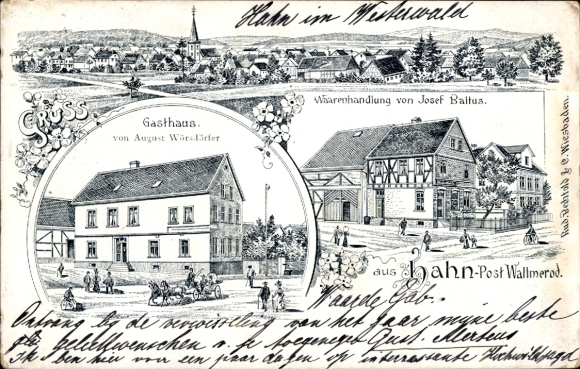 Hahn im Westerwald
Waarenhandlung von Josef Baltus.
Gruss
Gasthaus.
von August Wörsdörfer
Rud. Bechtold & C. Wiesbaden.
aus Hahn-Post Wallmerod.
Waarde Gab.
Ontvang bij de verwisseling van het jaar mijne beste
gelukwenschen v. je toegenegen Gust. Mertens
Ik ben hier voor een paar dagen op interessante Hochwildjagd